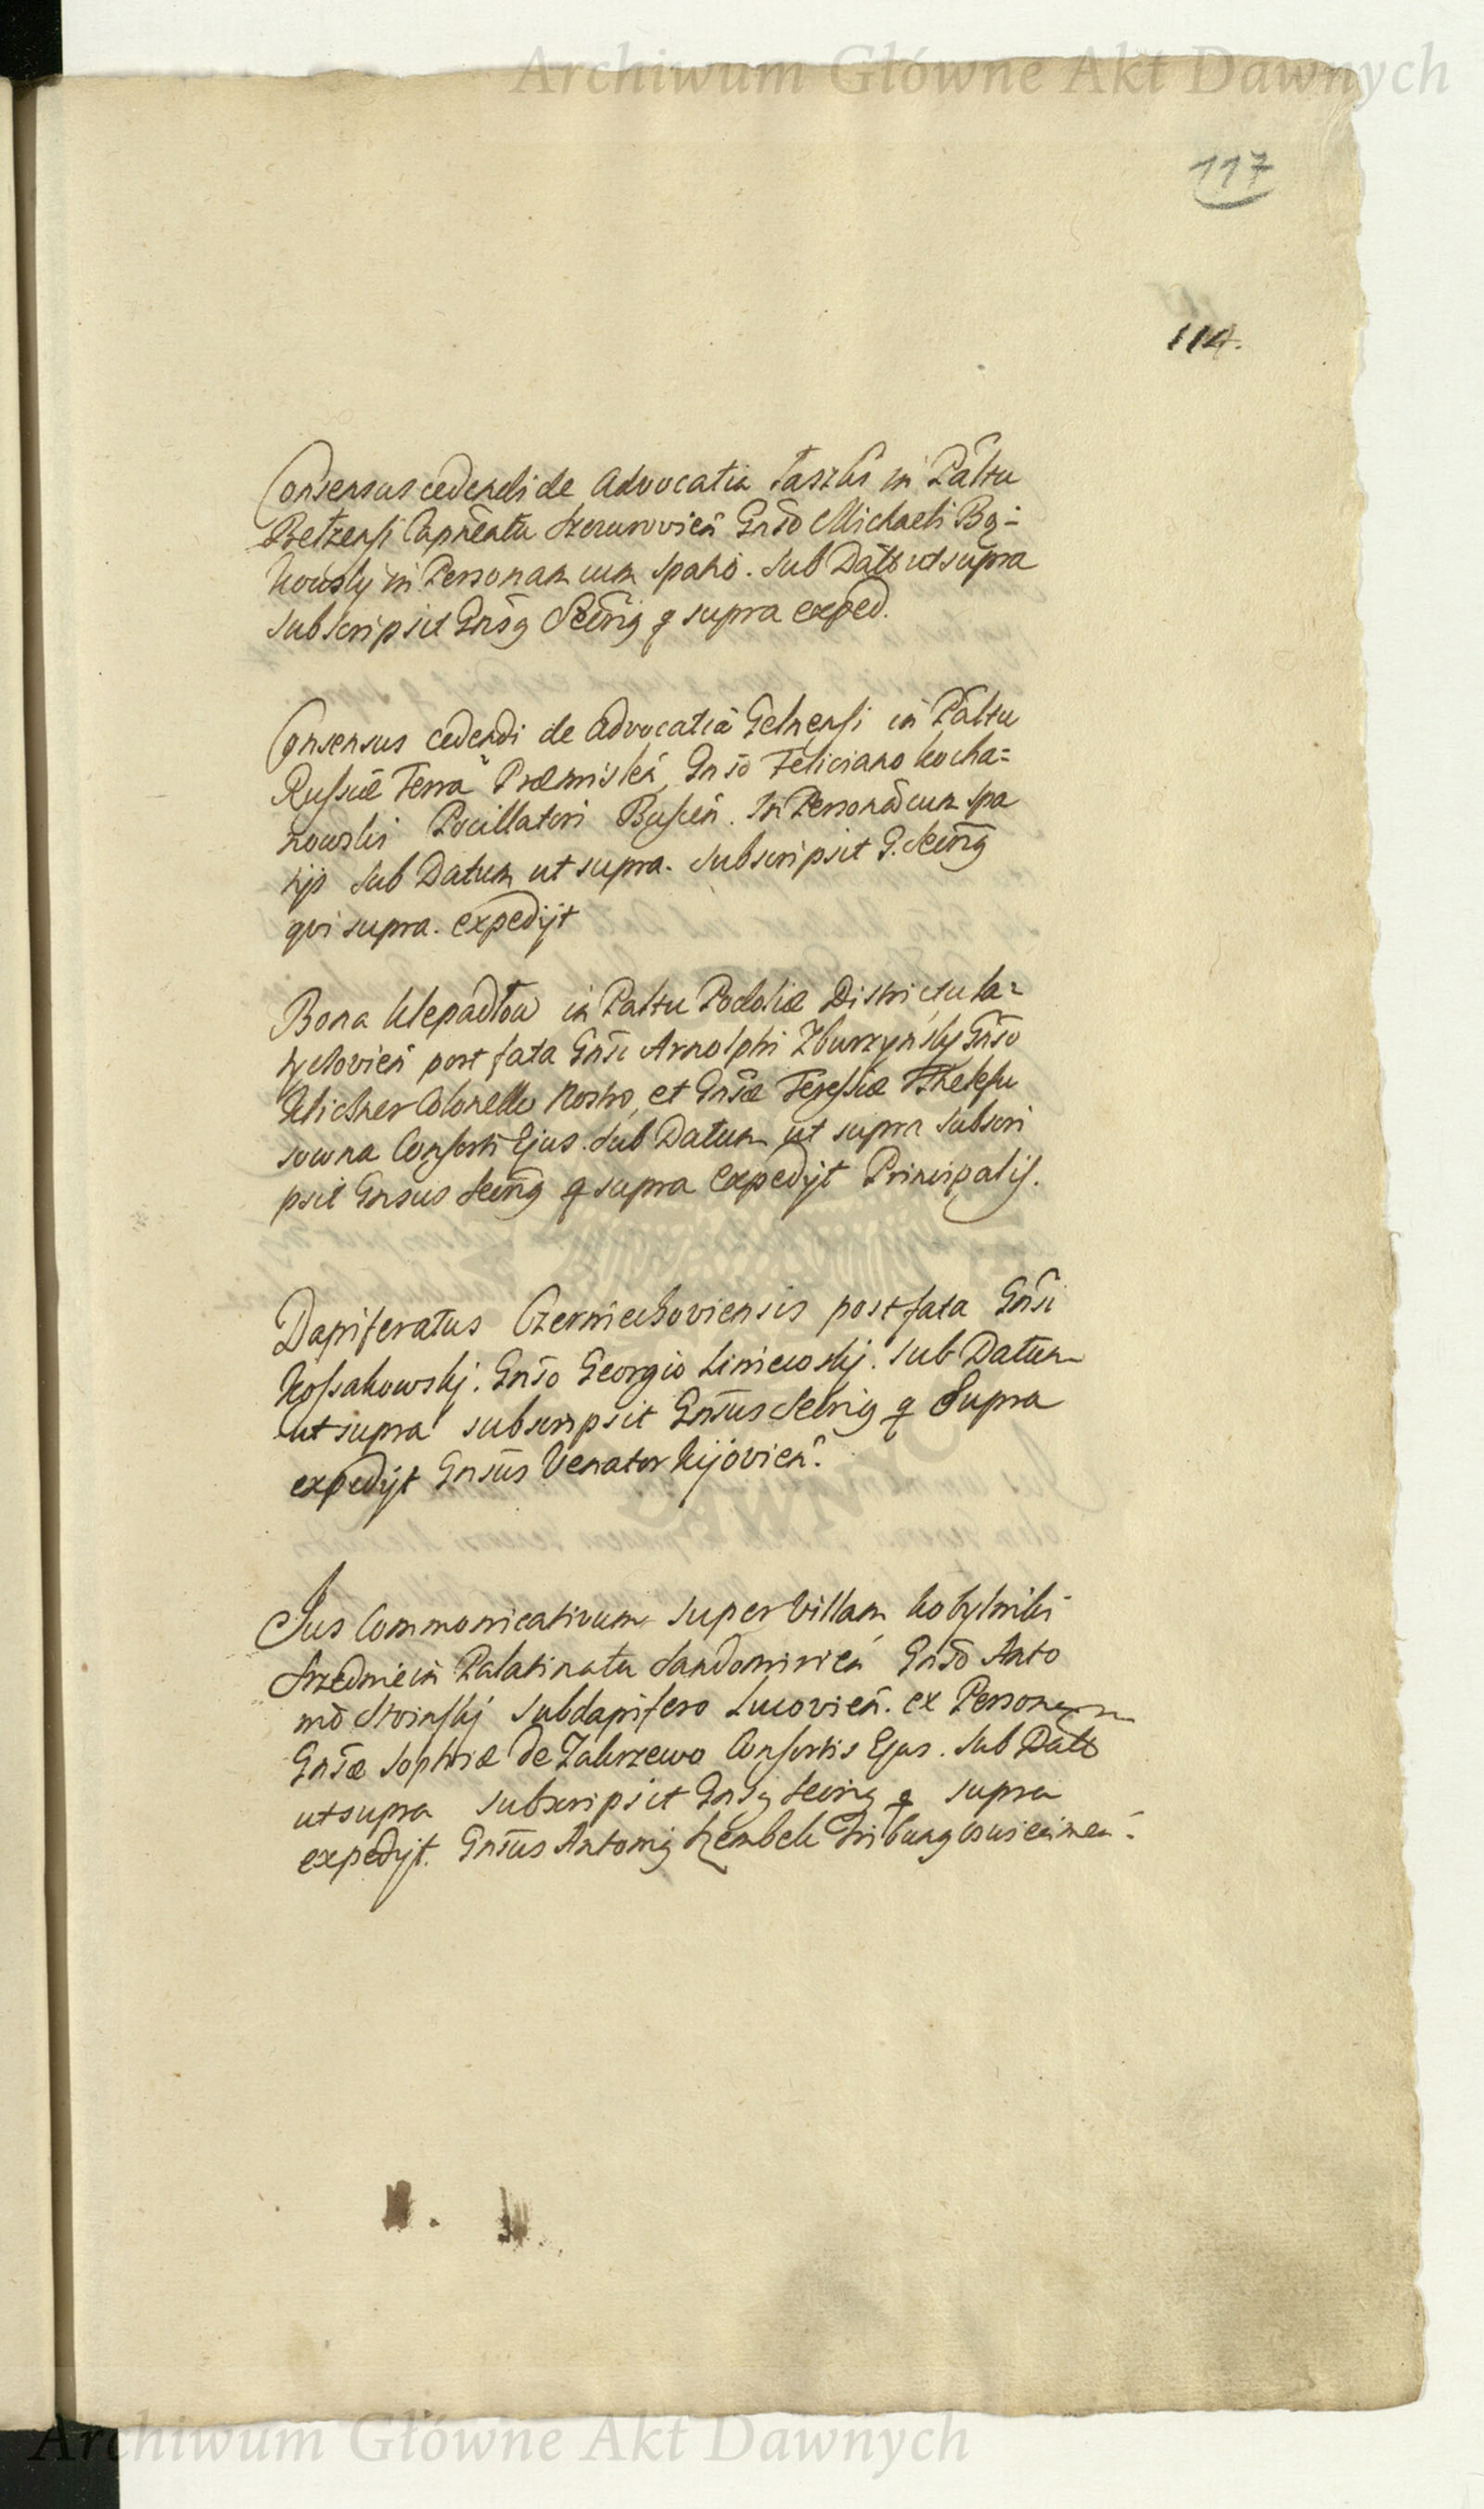 Archiwum Główne Akt Dawnych
117
114.
Consensus cedendi de Advocatia Taszki in Palttu
Betzensi Capneatu Szczurovien Gnso Michaeli By=
kowsky in Personam cum spatio. Sub Datto ut supra
subscripsit Gnsg Secrig q supra exped.
Consensus cedendi de Advocatia Gelnensi in Palttu
Russiæ Terra Præmislen, Gnso Feliciano Kocha=
nowski Pocillatori Buscen. In Personã cum spa
tijo Sub Datum ut supra. subscripsit G. Secrig
qui supra. expedijt
Bona Klepadtow in Palttu Podoliæ Districtu La=
tyczovien post fata Gnsi Arnolphi Zburzynsky Gnso
Colonello Nostro, et Gnsæ Teressiæ
Consorti Ejus. Sub Datum ut supra subscri
psit Gnsus Secrig q supra expedijt Principalis.
Dapiferatus Czerniechoviensis post fata Gnsi
Kossakowskj. Gnso Georgio Liniewskj. sub Datum
ut supra subscripsit Gnsus Secrig q Supra
expedijt Gnsus Venator Kijovien.
Jus Communicativum super Villam Kobylniki
Srzednie in Palatinatu Sandomirien Gnso Anto
nio Subdapifero Lucovien. ex Personam
Gnsæ Sophiæ de Zakrzewo Consortis Ejus. Sub Datto
ut supra subscripsit Gnsg Secrig q supra
expedijt. Gnsus Antonig Szembek Tribung
Archiwum Główne Akt Dawnych